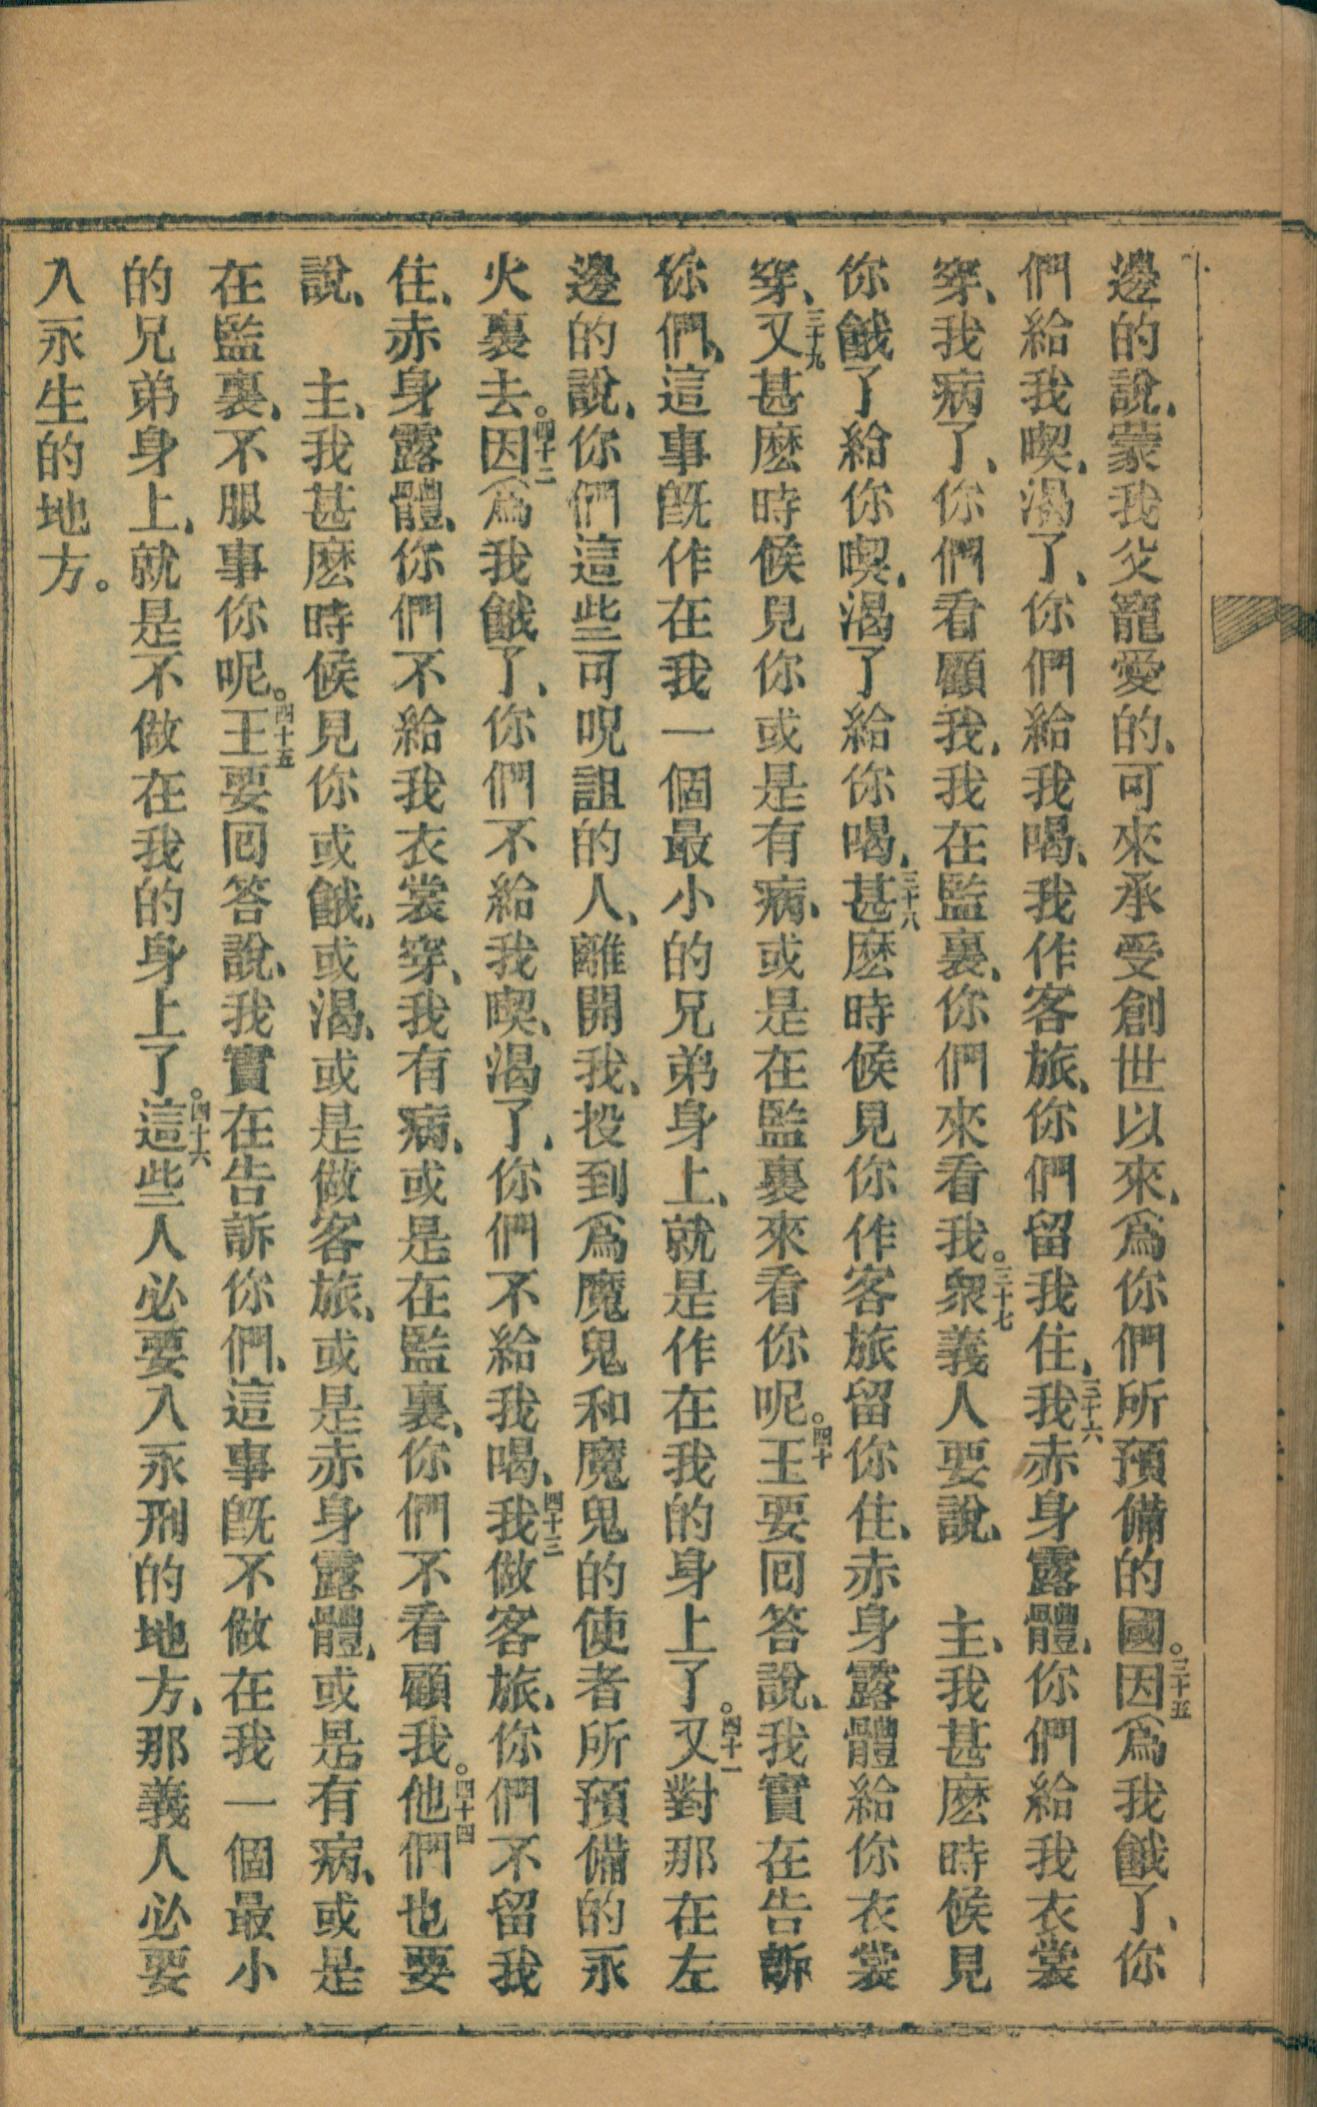 邊的說、蒙我父寵愛的、可來承受創世以來、爲你們所預備的國。三十五因爲我餓了、你
們給我喫、渴了、你們給我喝、我作客旅、你們留我住、三十六我赤身露體、你們給我衣裳
穿、我病了、你們看顧我、我在監裏、你們來看我。三十七衆義人要說、　主、我甚麽時候見
你餓了給你喫、渴了給你喝、三十八甚麽時候見你作客旅留你住、赤身露體給你衣裳
穿、三十九又甚麽時候見你或是有病、或是在監裏來看你呢。四十王要囘答說、我實在告訴
你們、這事旣作在我一個最小的兄弟身上、就是作在我的身上了。四十一又對那在左
邊的說、你們這些可呪詛的人、離開我、投到爲魔鬼和魔鬼的使者所預備的永
火裏去。四十二因爲我餓了、你們不給我喫、渴了、你們不給我喝、四十三我做客旅、你們不留我
住、赤身露體、你們不給我衣裳穿、我有病、或是在監裏、你們不看顧我。四十四他們也要
說、　主、我甚麽時候見你或餓、或渴、或是做客旅、或是赤身露體、或是有病、或是
在監裏、不服事你呢。四十五王要囘答說、我實在告訴你們、這事旣不做在我一個最小
的兄弟身上、就是不做在我的身上了。四十六這些人必要入永刑的地方、那義人必要
入永生的地方。